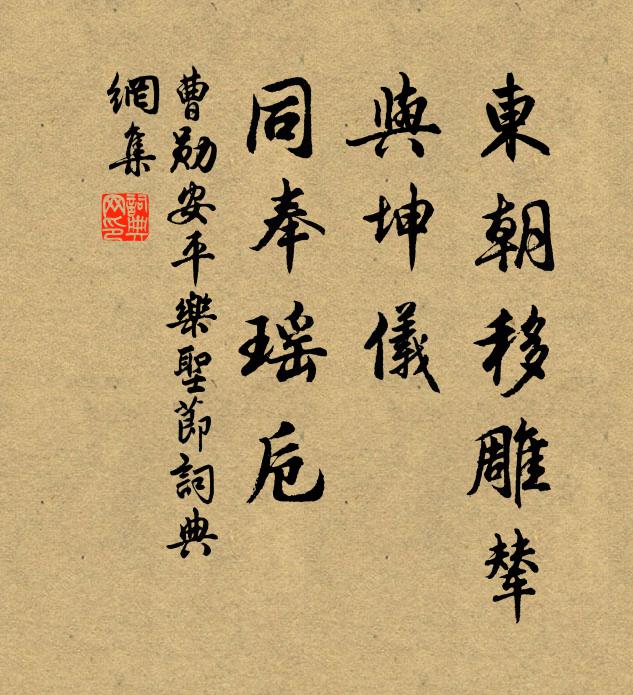 東朝移雕輦
與坤儀
同奉瑤卮
曹勛安平樂聖節詞典
網集
詞典网印